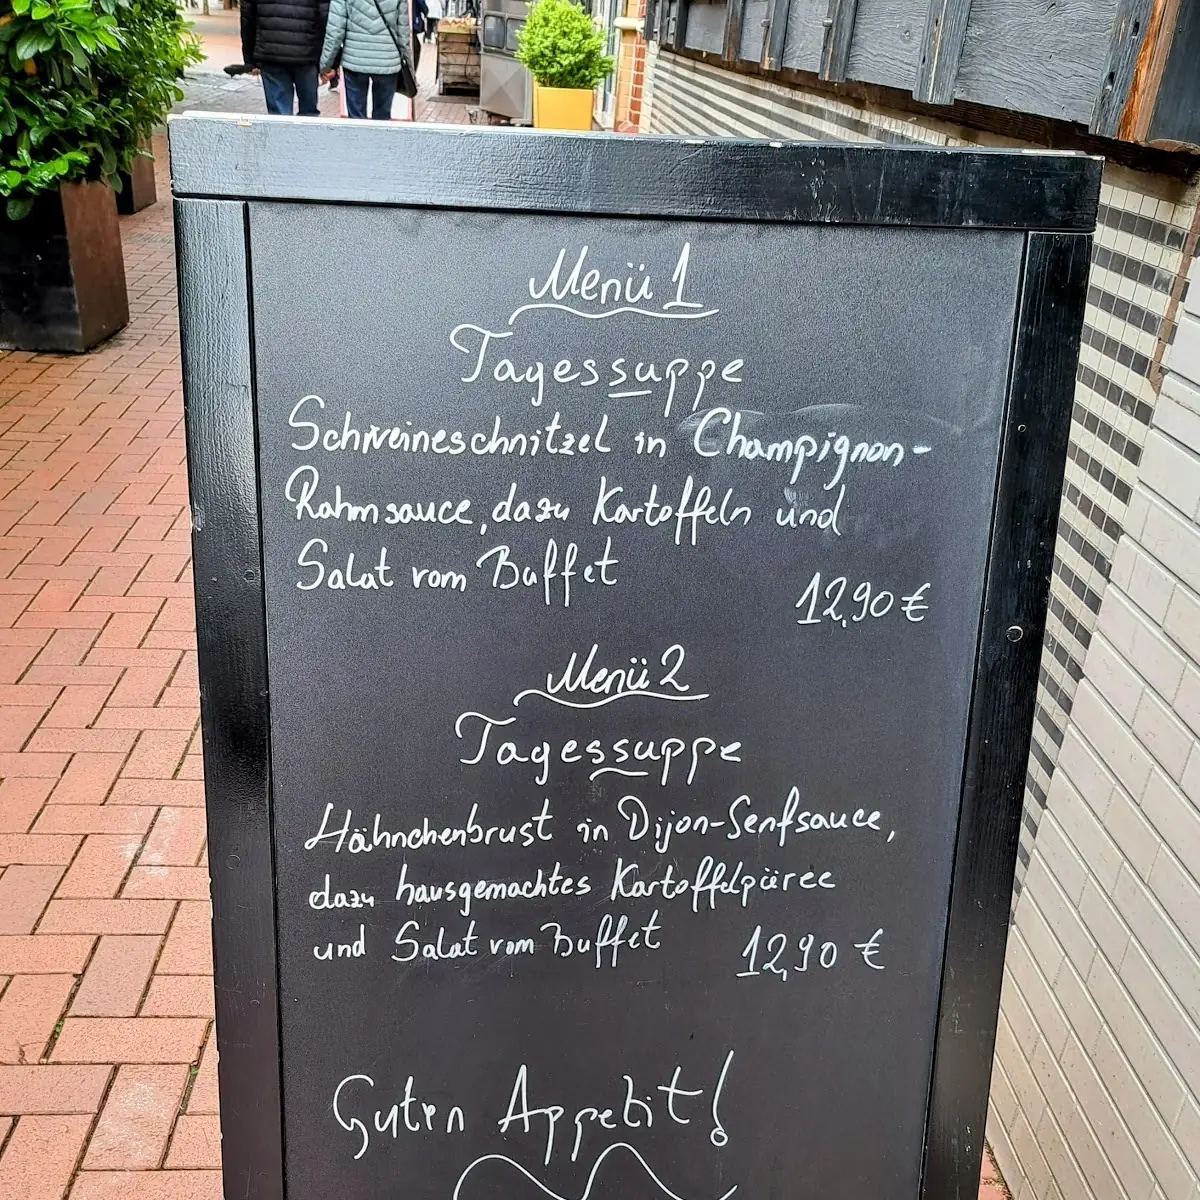 Menü 1
Tagessuppe
Schweineschnitzel in Champignon-
Rahmsauce, dazu Kartoffeln und
Salat vom Buffet
12,90 €
Menü 2
Tagessuppe
Hähnchenbrust in Dijon-Senfsauce,
dazu hausgemachtes Kartoffelpüree
und Salat vom Buffet
12,90 €
Guten Appetit!